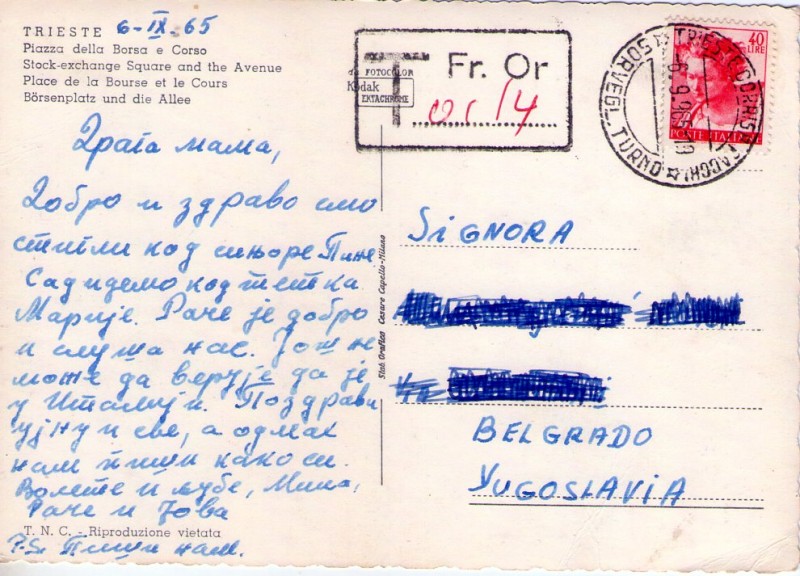 TRIESTE 6-IX-65
Piazza della Borsa e Corso
Stock-exchange Square and the Avenue
Place de la Bourse et le Cours
Börsenplatz und die Allee
T Fr. Or
FOTOCOLOR
Kodak
EKTACHROME
40
LIRE
POSTE ITALIANE
SORVEGL. TURNO
Драга мама,
Добро и здраво смо
стигли код сињоре Пине
Сад идемо код тетка
Марије. Раче је добро
и слуша нас. Још не
може да верује да је
у Италији. Поздрави
ујну и све, а одмах
нам пиши како си.
Волете и љубе, Мица,
Раче и Јова
P.S. Пиши нам.
T. N. C. - Riproduzione vietata
Stab. Grafico Cesare Capello - Milano
SIGNORA
BELGRADO
YUGOSLAVIA